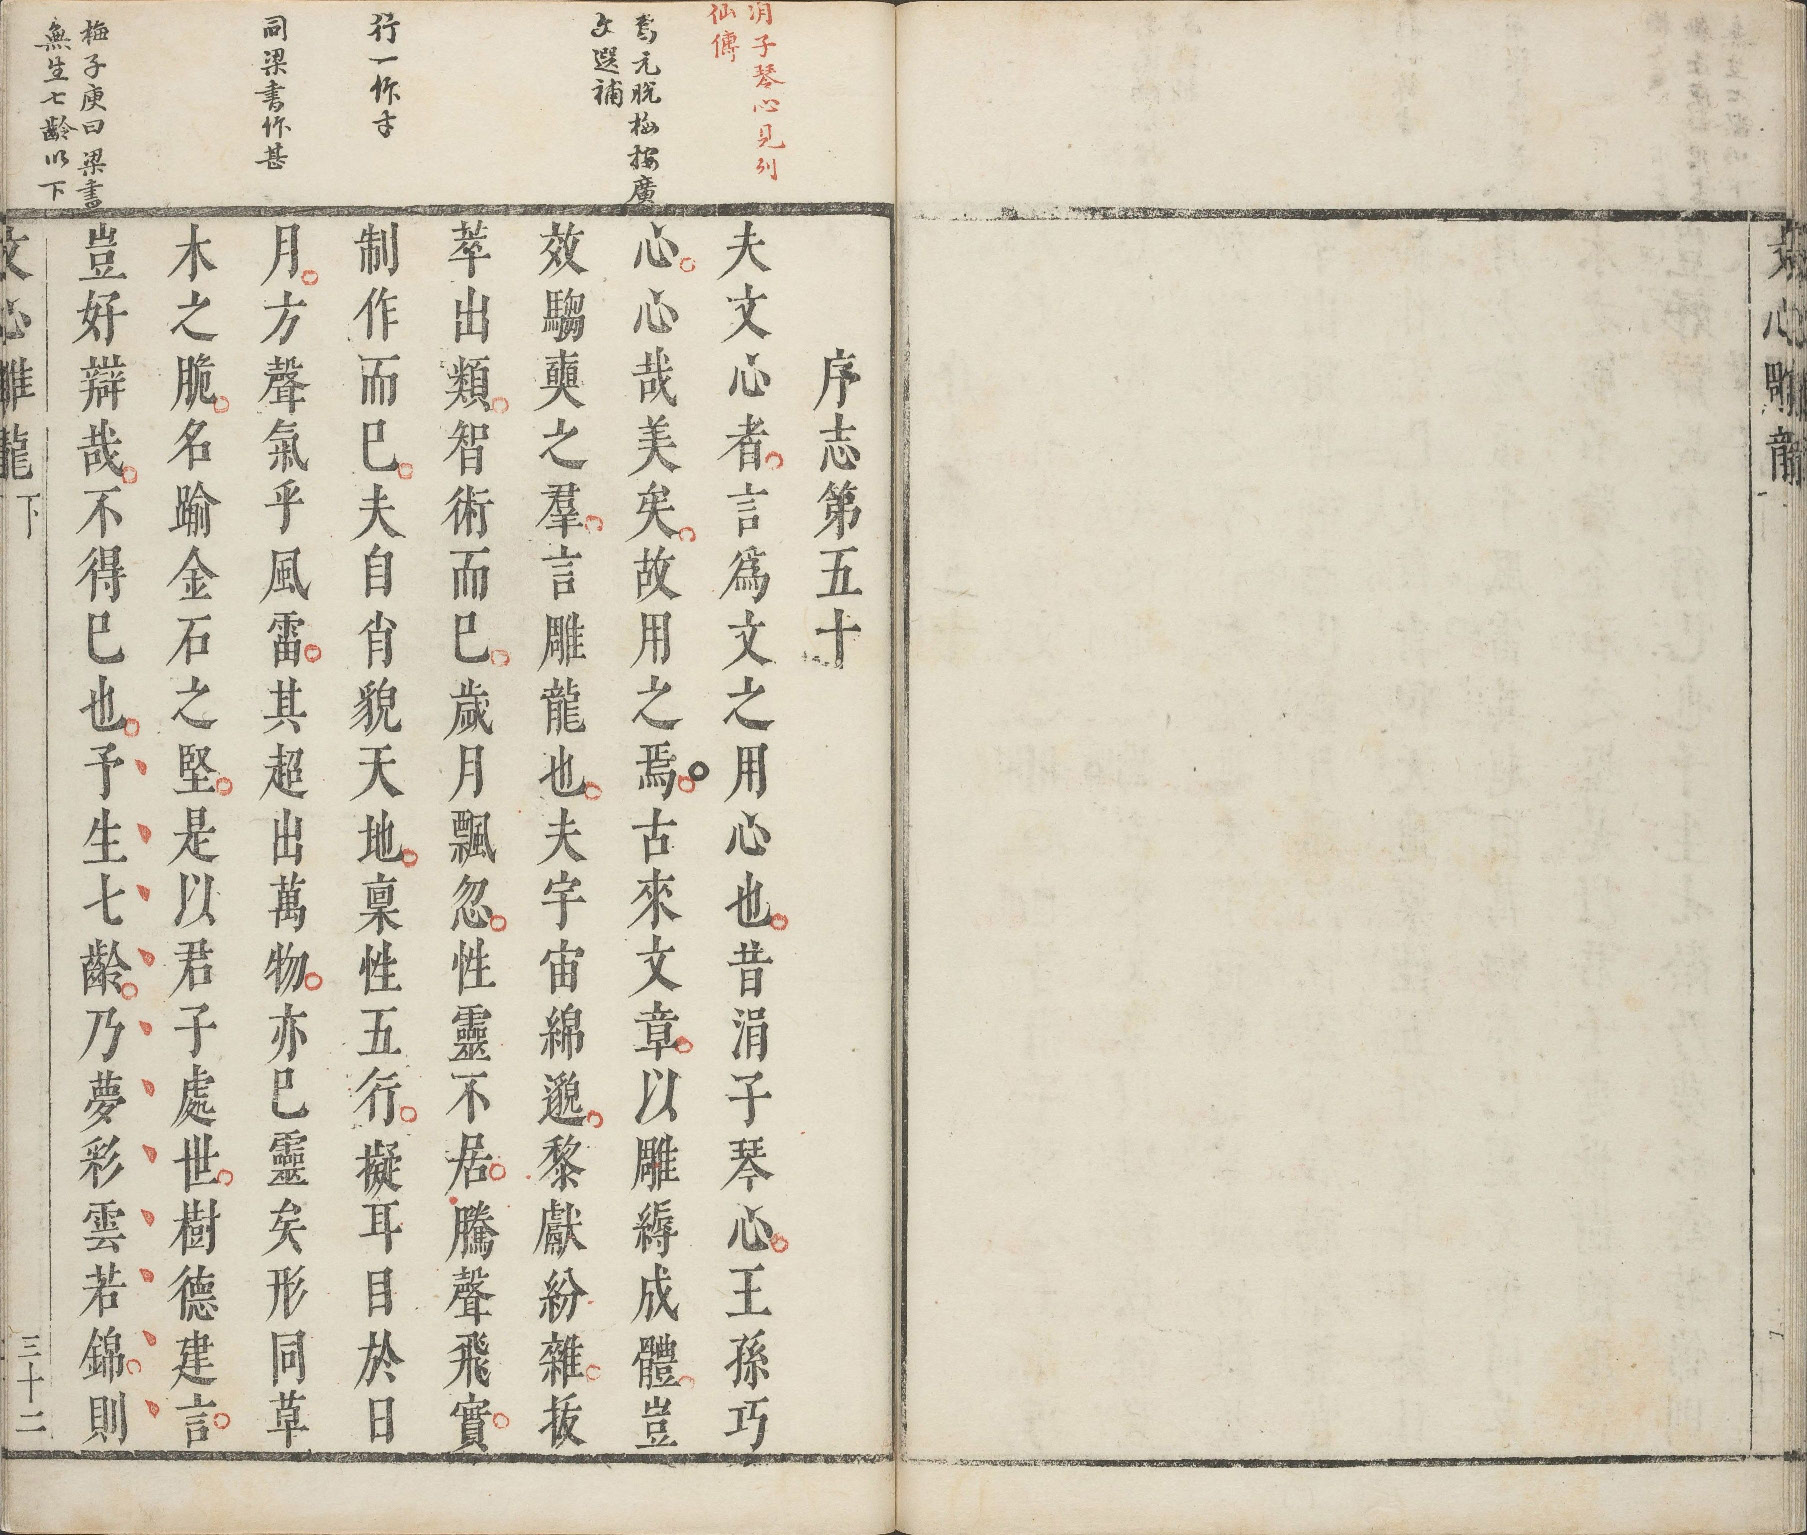 文心雕龍
涓子琴心見列
仙傳
焉元脫梅按廣
文選補
行一作才
同梁書作甚
梅子庚曰梁書
無生七齡以下
序志第五十
夫文心者言爲文之用心也昔涓子琴心王孫巧
心心哉美矣故用之焉古來文章以雕縟成體豈
效騶奭之羣言雕龍也夫宇宙綿邈黎獻紛雜拔
萃出類智術而已歲月飄忽性靈不居騰聲飛實
制作而已夫自肖貌天地稟性五行擬耳目於日
月方聲氣乎風雷其超出萬物亦已靈矣形同草
木之脆名踰金石之堅是以君子處世樹德建言
豈好辯哉不得已也予生七齡乃夢彩雲若錦則
文心雕龍 下 三十二